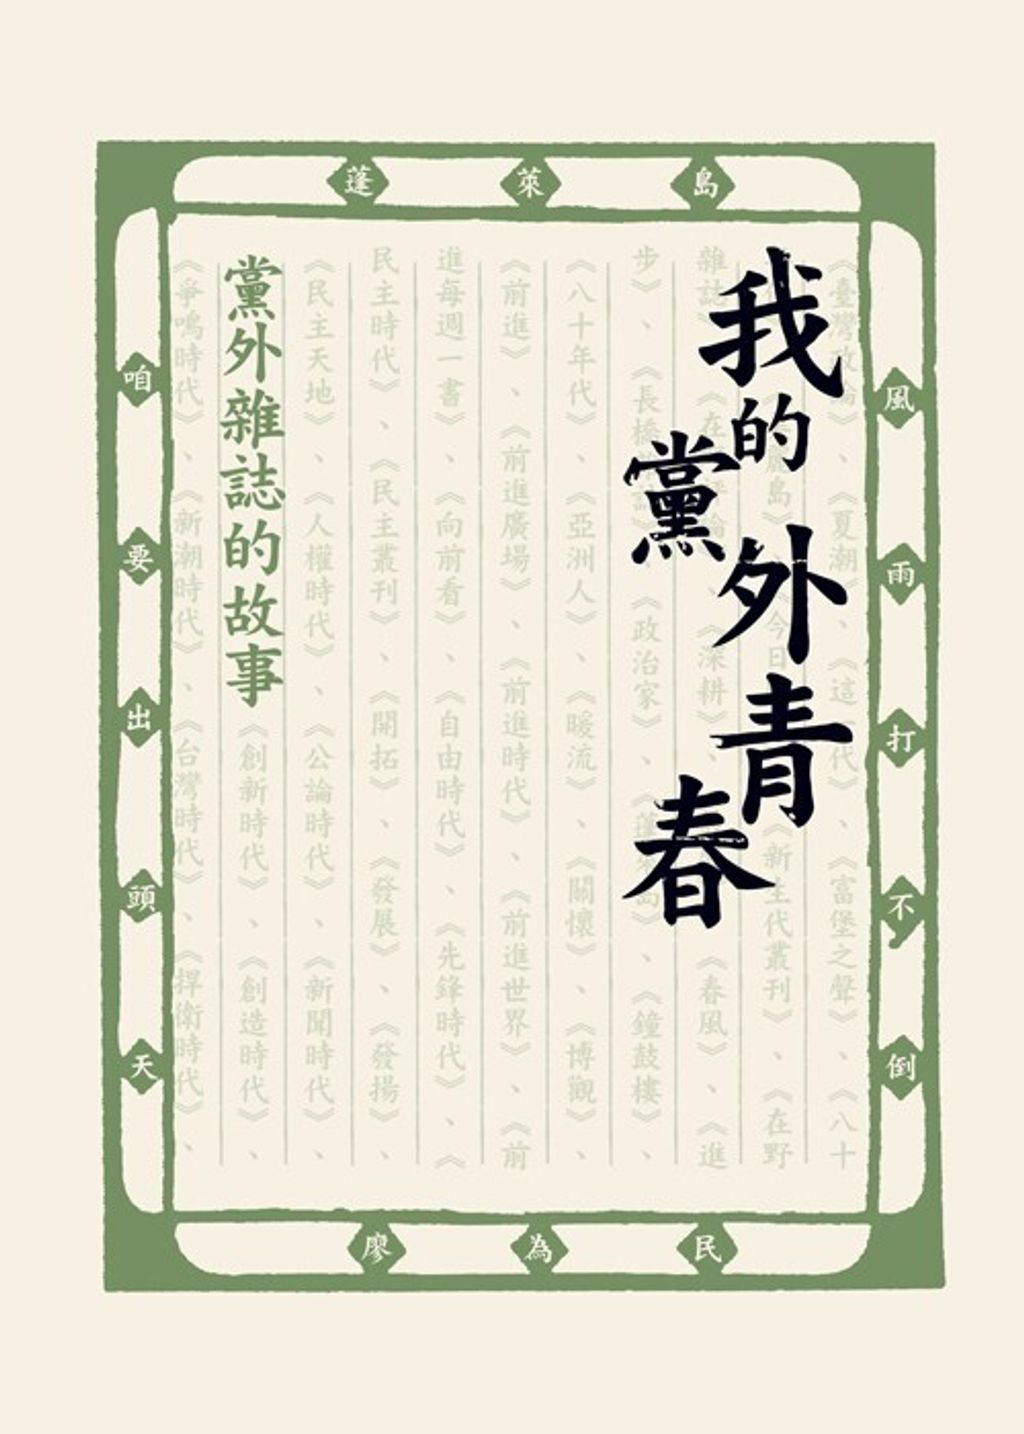 蓬萊島
風雨打不倒
我的黨外青春
《臺灣政論》、《夏潮》、《這一代》、《富堡之聲》、《八十
麗島》、《今日《新生代叢刊》、《在野
雜誌》、《深耕》、《春風》、《進
步》、《長橋雜誌》、《政治家》、《蓬萊島》、《鐘鼓樓》、
《八十年代》、《亞洲人》、《暖流》、《關懷》、《博觀》、
《前進》、《前進廣場》、《前進時代》、《前進世界》、《前
進每週一書》、《向前看》、《自由時代》、《先鋒時代》、《
民主時代》、《民主叢刊》、《開拓》、《發展》、《發揚》、
《民主天地》、《人權時代》、《公論時代》、《新聞時代》、
黨外雜誌的故事
《創新時代》、《創造時代》、
《爭鳴時代》、《新潮時代》、《台灣時代》、《捍衛時代》、
咱要出頭天
廖為民